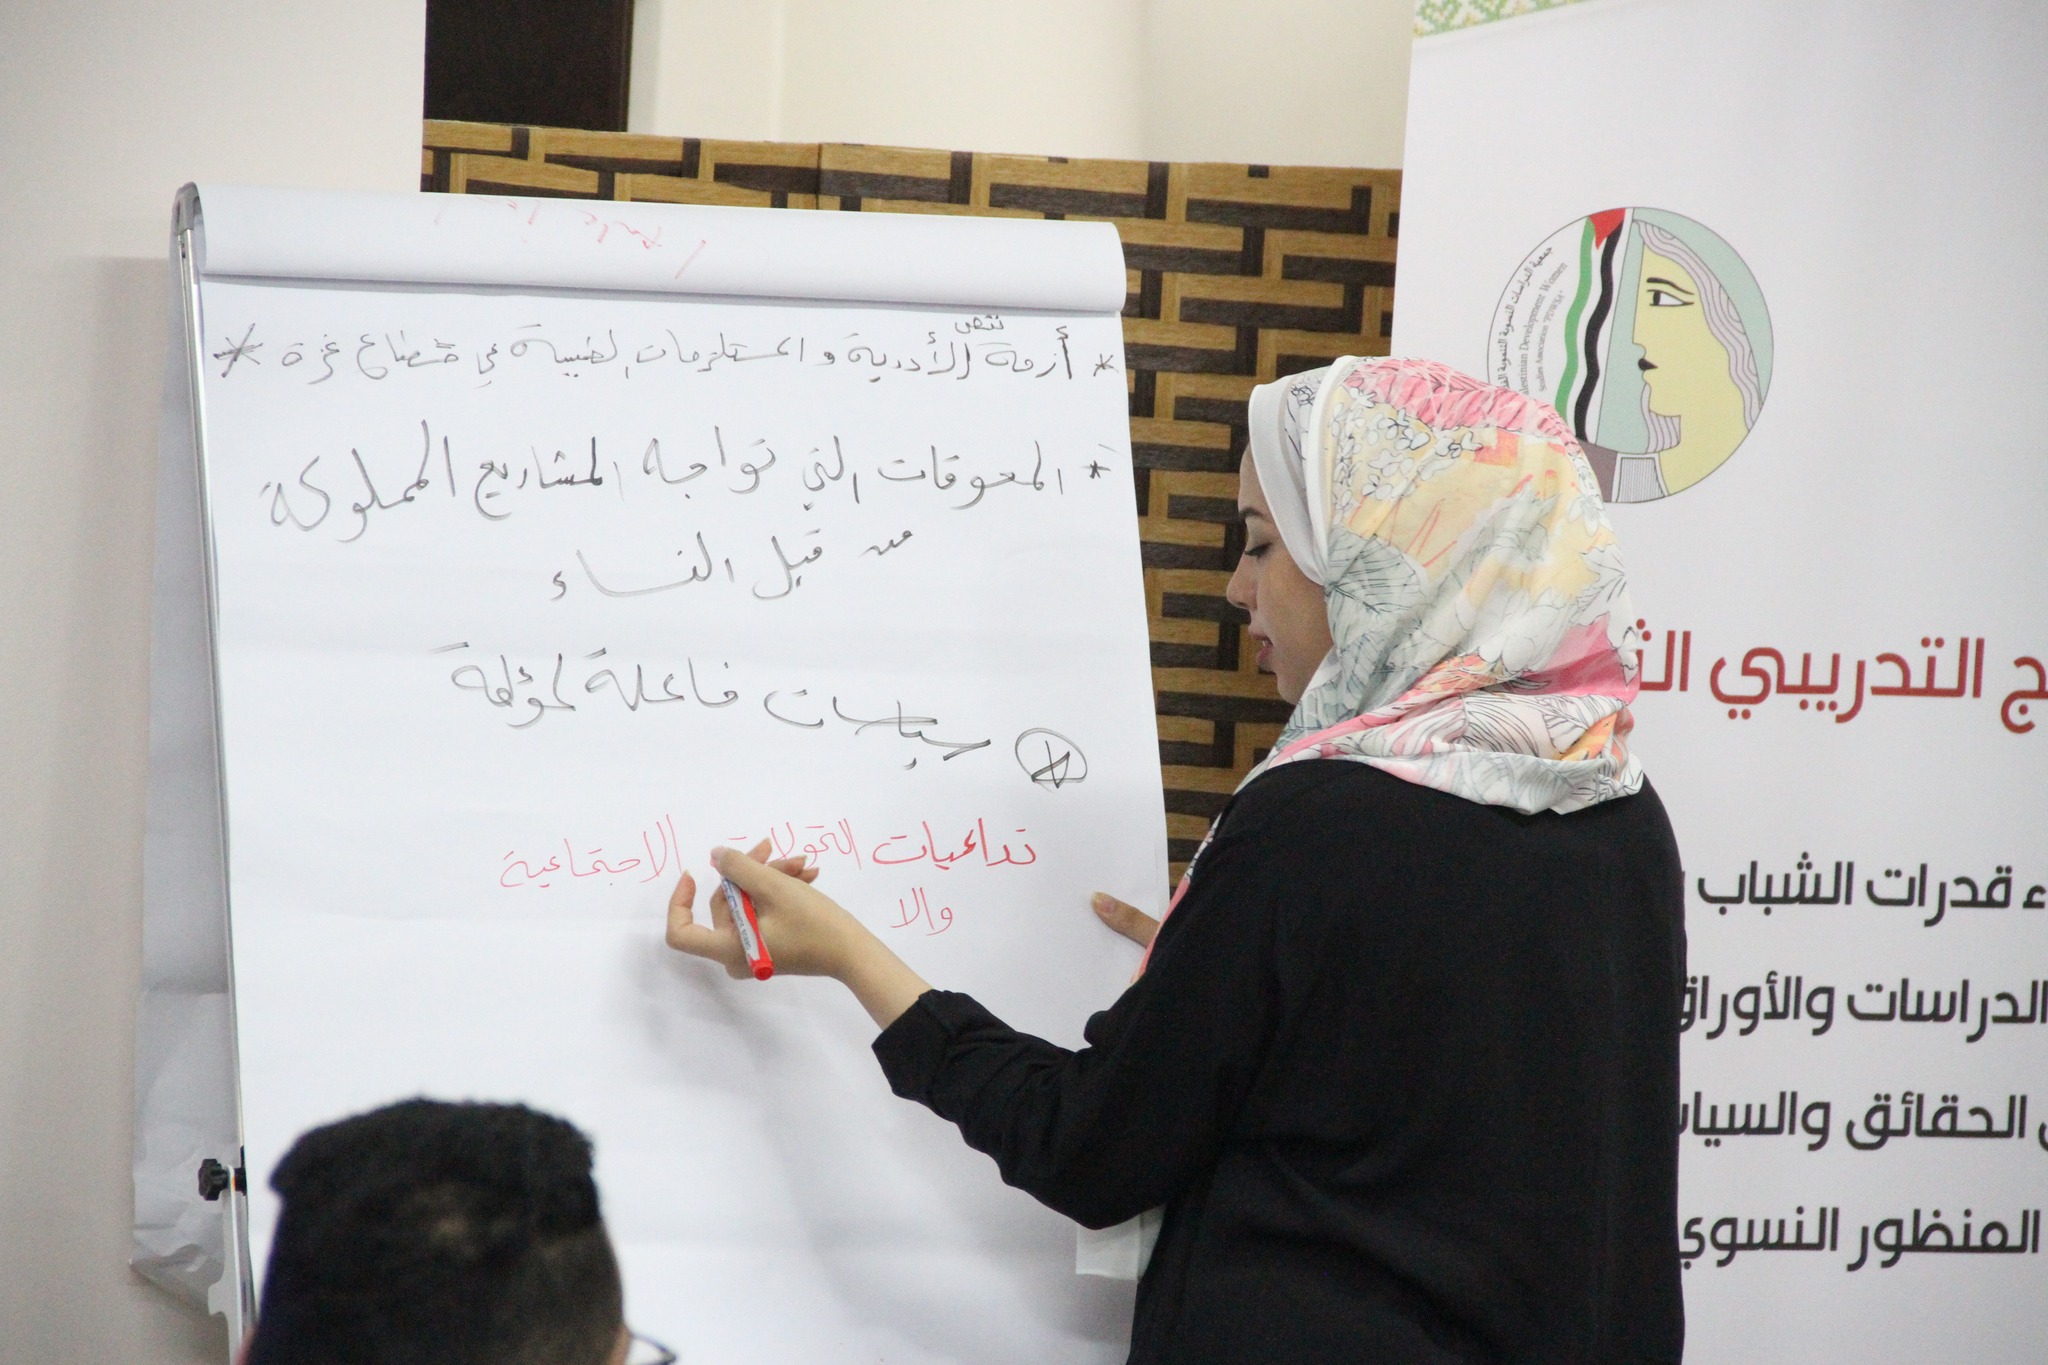 نقص
* أزمة الأدوية و المستلزمات الطبية في قطاع غزة *
* المعوقات التي تواجه المشاريع المملوكة
من قبل النساء
سياسات فاعلة
تداعيات التحولات الاجتماعية
والا
جمعية الدراسات النسوية التنموية
Palestinian Development Women
Studies Association "PDWSA"
ج التدريبي الث
ء قدرات الشباب
الدراسات والأوراق
الحقائق والسيا
المنظور النسوي